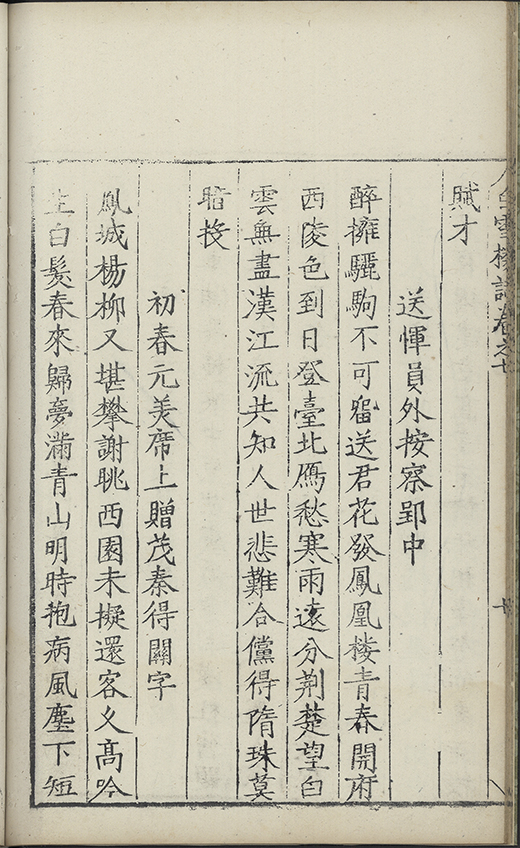 白雪樓詩卷之七
賦才
送惲員外按察郢中
醉擁驪駒不可留送君花發鳳凰樓青春開府
西陵色到日登臺北鴈愁寒雨遠分荆楚望白
雲無盡漢江流共知人世悲難合儻得隋珠莫
暗投
初春元美席上贈茂秦得關字
鳳城楊柳又堪攀謝眺西園未擬還客久髙吟
生白髮春來歸夢滿青山明時抱病風塵下短